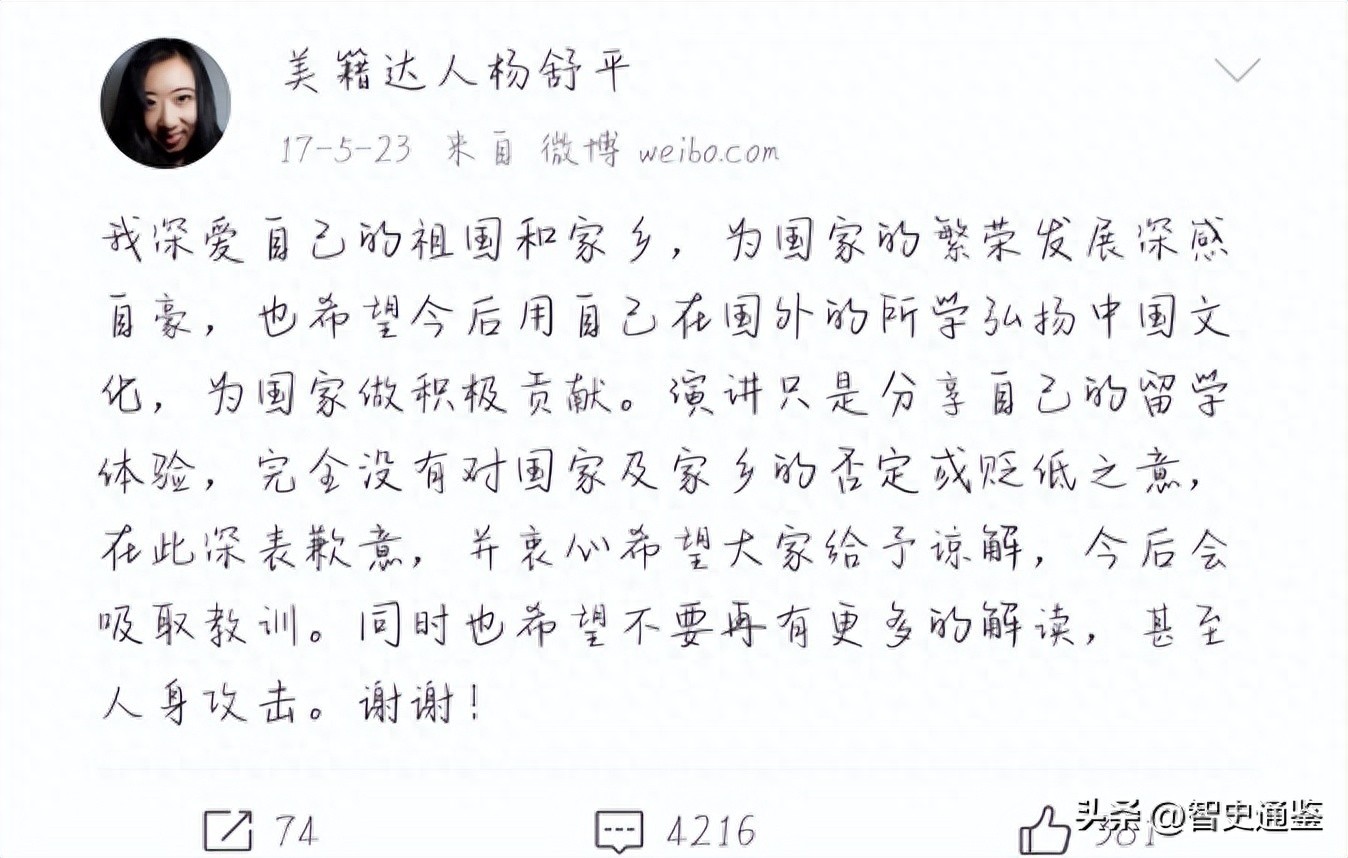 美籍达人杨舒平
17-5-23 来自 微博 weibo.com
我深爱自己的祖国和家乡，为国家的繁荣发展深感
自豪，也希望今后用自己在国外的所学弘扬中国文
化，为国家做积极贡献。演讲只是分享自己的留学
体验，完全没有对国家及家乡的否定或贬低之意，
在此深表歉意，并衷心希望大家给予谅解，今后会
吸取教训。同时也希望不要再有更多的解读，甚至
人身攻击。谢谢！
74 4216
头条 @智史通鉴